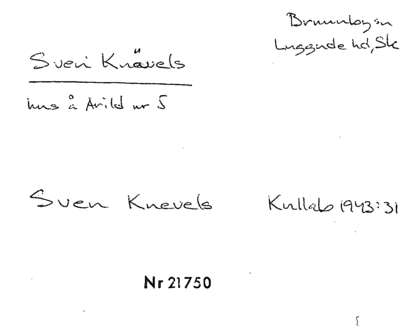 Brunnbyn
Luggude hd, Sk
Sven Knävels
hus å Arild nr 5
Sven Knevels Kullabo 1943:31
Nr 21750